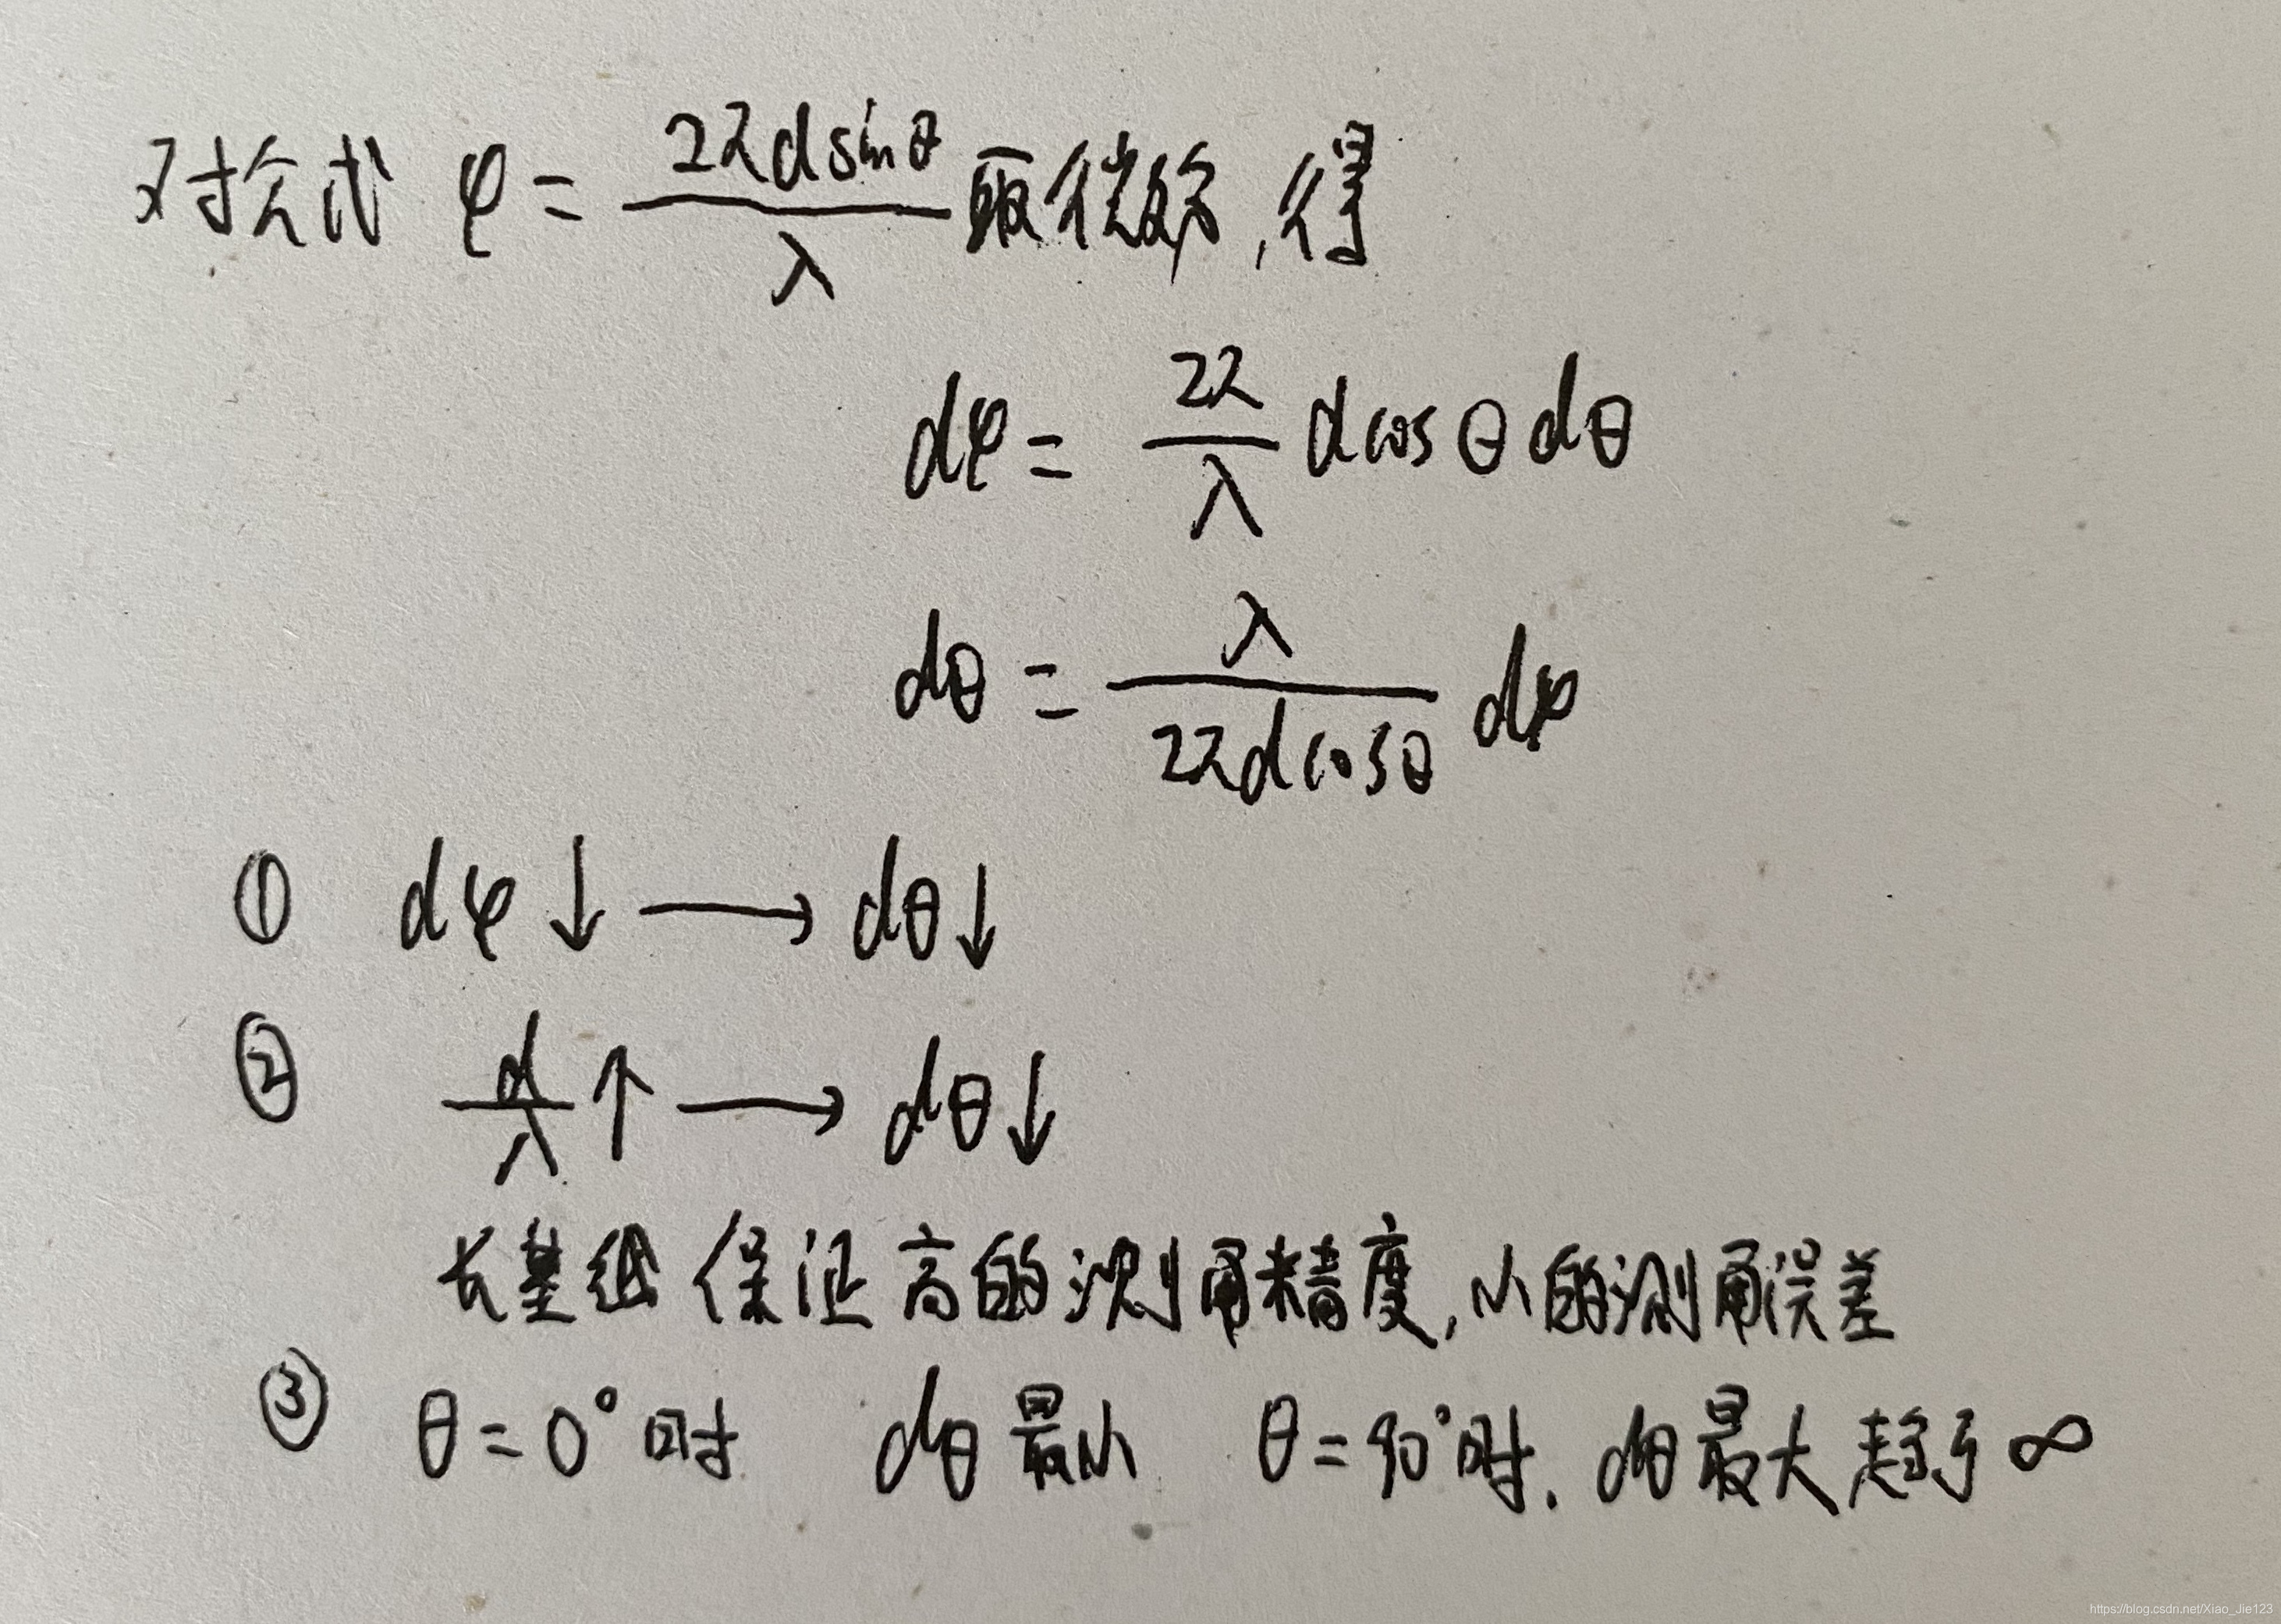 对公式 φ = 2πdsinθ / λ 取微分,得
dφ = 2π / λ dcosθdθ
dθ = λ / 2πdcosθ dφ
① dφ↓ → dθ↓
② d / λ ↑ → dθ↓
长基线 保证 高的测角精度,小的测角误差
③ θ=0°时 dθ最小 θ=90°时. dθ最大趋于∞
https://blog.csdn.net/Xiao_Jie123